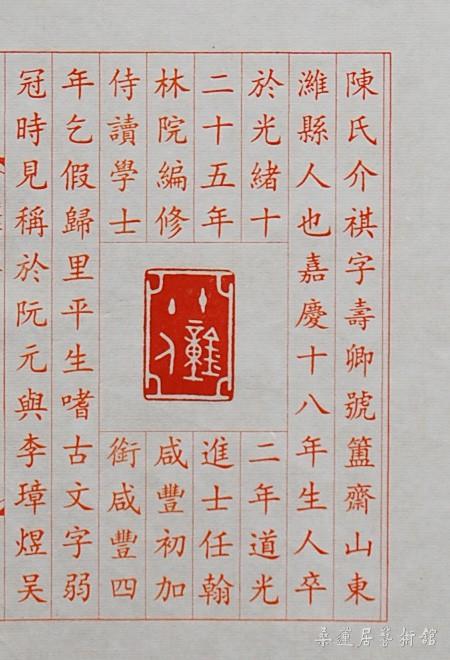 陳氏介祺字壽卿號簠齋山東
濰縣人也嘉慶十八年生人卒
於光緒十二年道光
二十五年進士任翰
林院編修咸豐初加
侍讀學士銜咸豐四
年乞假歸里平生嗜古文字弱
冠時見稱於阮元與李璋煜吳
桑蓮居藝術館